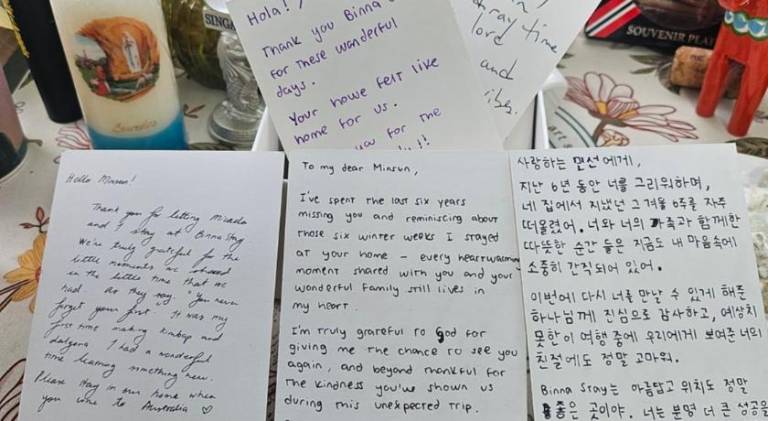 SINGA
SOUVENIR PLA
Hola!
Thank you Binna
for these wonderful
days.
Your howe felt like
home for us.
for the
time
lord
and
Hello Minsun!
Thank you for letting
and I stay at Binna Stay
We're truly grateful for the
little moments we shared
in the little time that we
had. As they say, "You never
forget your first". It was my
first time making kimbap and
dalgona. I had a wonderful
time learning something new.
Please stay in our home when
you come to Australia ♡
To my dear Minsun,
I've spent the last six years
missing you and reminiscing about
those six winter weeks I stayed
at your home – every heartwarming
moment shared with you and your
wonderful family still lives in
my heart.
I'm truly grateful to God for
giving me the chance to see you
again, and beyond thankful for
the kindness you've shown us
during this unexpected trip.
사랑하는 민선에게,
지난 6년 동안 너를 그리워하며,
네 집에서 지냈던 그겨울 6주를 자주
떠올렸어. 너와 너의 가족과 함께한
따뜻한 순간 들은 지금도 내 마음속에
소중히 간직되어 있어.
이번에 다시 너를 만날 수 있게 해준
하나님께 진심으로 감사하고, 예상치
못한 이 여행 중에 우리에게 보여준 너의
친절에도 정말 고마워.
Binna Stay는 아름답고 위치도 정말
좋은 곳이야. 너는 분명 더 큰 성공을